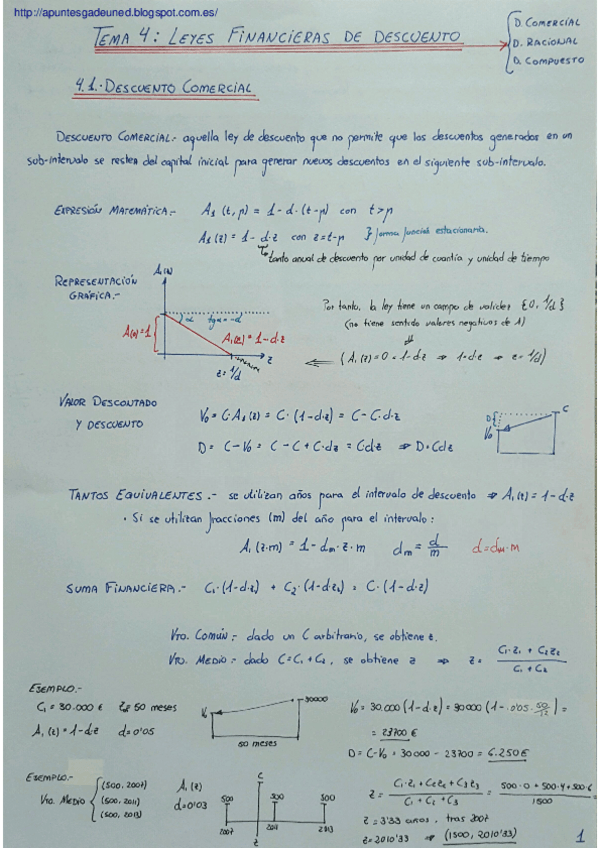 http://apuntesgadeuned.blogspot.com.es/
TEMA 4: LEYES FINANCIERAS DE DESCUENTO
D. COMERCIAL
D. RACIONAL
D. COMPUESTO
4.1.- DESCUENTO COMERCIAL
DESCUENTO COMERCIAL.- aquella ley de descuento que no permite que los descuentos generados en un
sub-intervalo se resten del capital inicial para generar nuevos descuentos en el siguiente sub-intervalo.
EXPRESIÓN MATEMÁTICA.- A₁ (t,p) = 1-d·(t-p) con t>p
A₁(z) = 1- d·z con z=t-p } forma funcial estacionaria.
tanto anual de descuento por unidad de cuantía y unidad de tiempo
REPRESENTACIÓN
GRÁFICA.-
A₁(z)
α tgα=-d
A(0)=1
A₁(z)=1-d·z
z
z=1/d
Por tanto, la ley tiene un campo de validez {0, 1/d}
(no tiene sentido valores negativos de A)
⇐ (A₁(z)=0=1-dz ⇒ 1=dz ⇒ z=1/d)
VALOR DESCONTADO
Y DESCUENTO
V₀ = C·A₁(z) = C·(1-d·z) = C-C·d·z
D = C-V₀ = C-C+C·dz = Cdz ⇒ D=Cdz
D
V₀
C
TANTOS EQUIVALENTES.- se utilizan años para el intervalo de descuento ⇒ A₁(z)=1-d·z
· Si se utilizan fracciones (m) del año para el intervalo:
A₁(z·m) = 1-dm·z·m dm=d/m d=dm·m
SUMA FINANCIERA.- C₁·(1-d·z₁) + C₂·(1-d·z₂) = C·(1-d·z)
Vto. COMÚN:- dado un C arbitrario, se obtiene z.
Vto. MEDIO:- dado C=C₁+C₂, se obtiene z ⇒ z = (C₁·z₁ + C₂z₂)/(C₁+C₂)
EJEMPLO.-
C₁=30.000 € 50 meses
A₁(z)=1-dz d=0'05
V₀
30000
50 meses
V₀=30.000(1-d·z)=30000(1-0'05·50/12)=
= 23700€
D=C-V₀=30000-23700=6.250€
EJEMPLO.-
Vto. MEDIO { (500, 2007)
(500, 2011)
(500, 2013)
A₁(z)
d=0'03
C
500 500 500
2007 2011 2013
z
z = (C₁·z₁+C₂z₂+C₃z₃)/(C₁+C₂+C₃) = (500·0+500·4+500·6)/1500
z=3'33 años, tras 2007
z=2010'33 ⇒ (1500, 2010'33)
1